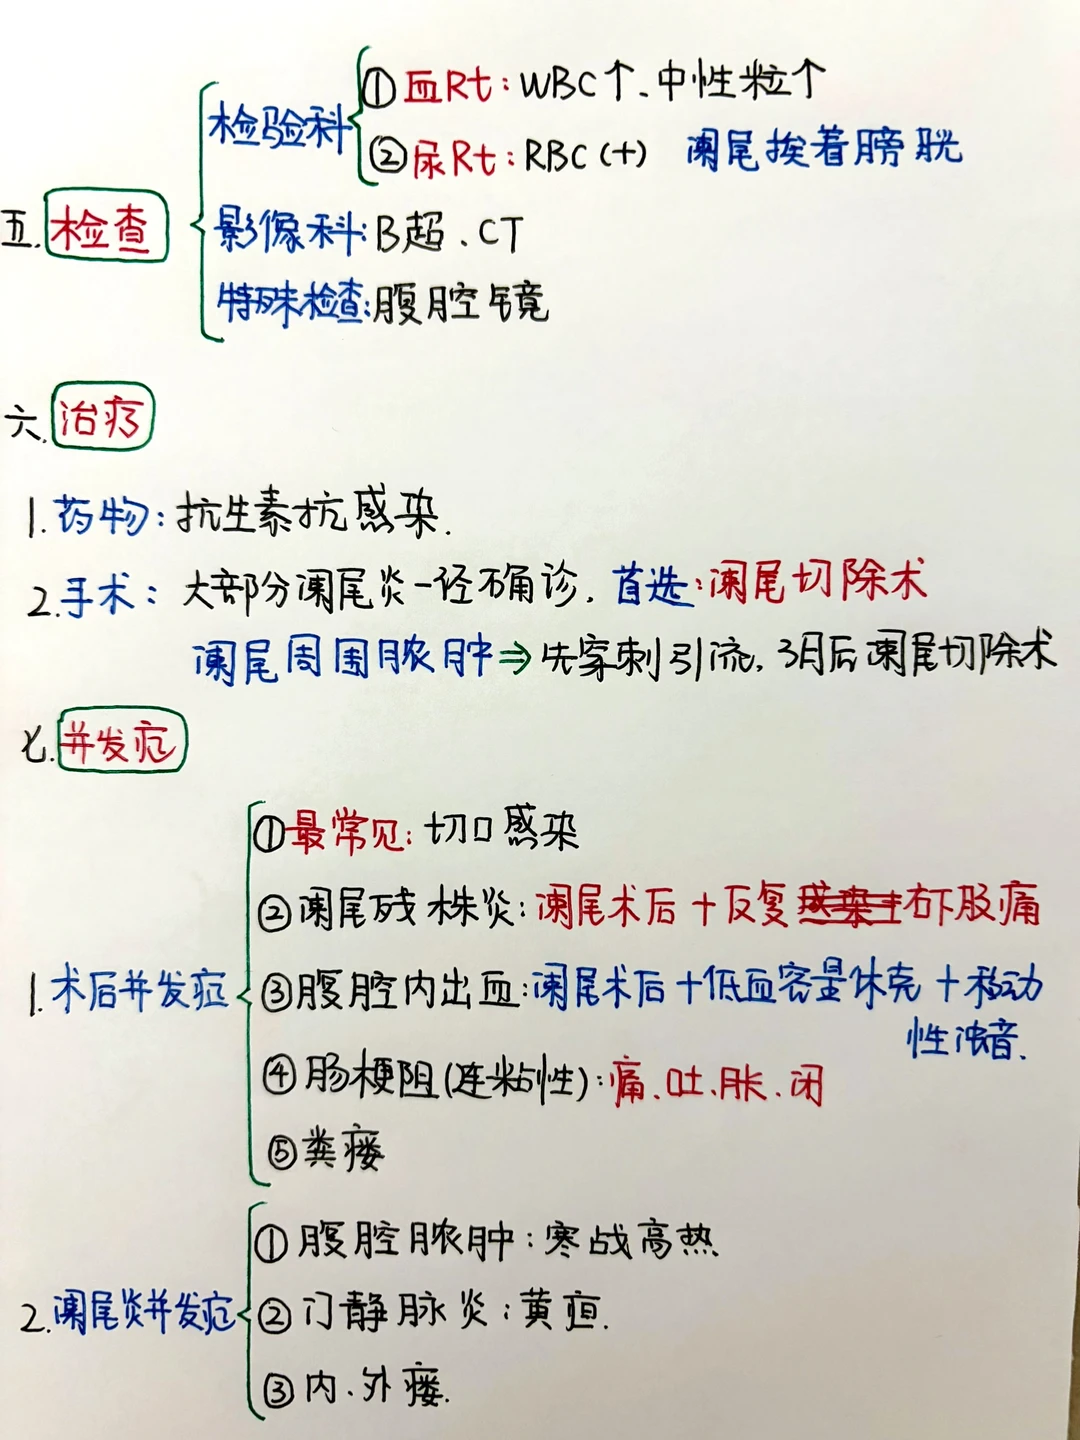 五.检查
检验科
①血Rt:WBC↑、中性粒↑
②尿Rt:RBC(+) 阑尾挨着膀胱
影像科:B超、CT
特殊检查:腹腔镜
六.治疗
1.药物:抗生素抗感染.
2.手术:大部分阑尾炎一经确诊,首选:阑尾切除术
阑尾周围脓肿⇒先穿刺引流,3月后阑尾切除术
七.并发症
1.术后并发症
①最常见:切口感染
②阑尾残株炎:阑尾术后+反复右下腹痛
③腹腔内出血:阑尾术后+低血容量休克+移动
性浊音.
④肠梗阻(连粘性):痛、吐、胀、闭
⑤粪瘘
2.阑尾炎并发症
①腹腔脓肿:寒战高热
②门静脉炎:黄疸.
③内、外瘘.